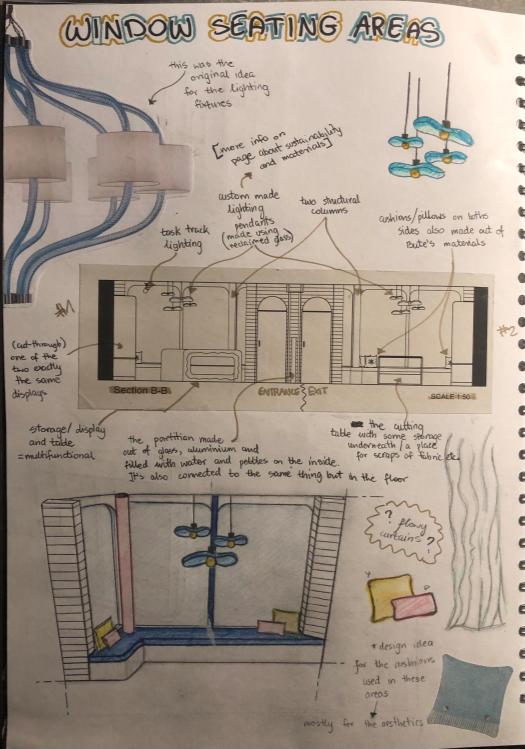 WINDOW SEATING AREAS
this was the
original idea
for the lighting
fixtures
[more info on
page about sustainability
and materials]
custom made
lighting
pendants
(made using
reclaimed glass)
two structural
columns
cushions/pillows on boths
sides also made out of
Bute's materials
task track
lighting
#1
#2
(cut-through)
one of the
two exactly
the same
displays
Section B-B
ENTRANCE
EXIT
SCALE 1:50
storage/display
and table
=multifunctional
the partition made
out of glass, aluminium and
filled with water and pebbles on the inside.
It's also connected to the same thing but in the floor
the cutting
table with some storage
underneath/a place
for scraps of fabric etc.
? flowy
curtains ?
* design idea
for the cushions
used in these
areas
mostly for the aesthetics